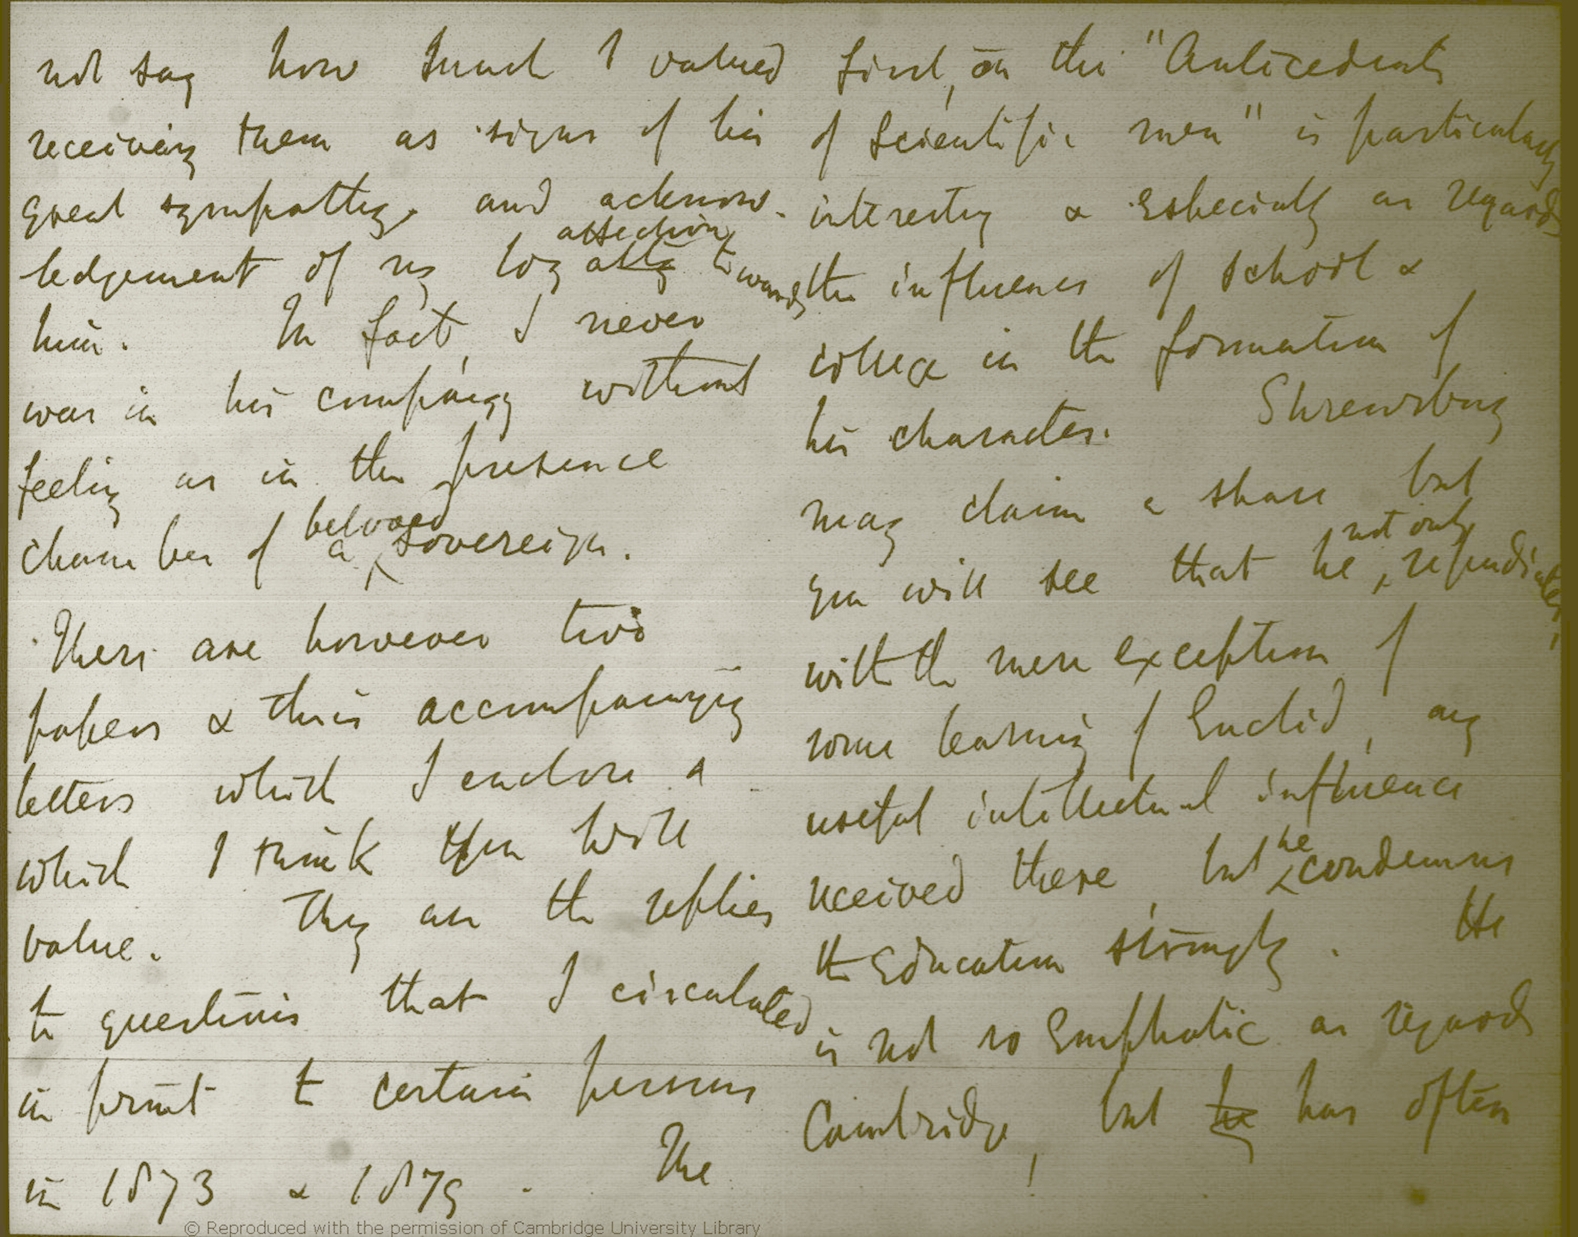 not say how much I valued
receiving them as signs of his
great sympathy, and acknow-
ledgement of my loyalty affection towards
him. In fact, I never
was in his company without
feeling as in the presence
chamber of a beloved sovereign.
There are however two
papers & their accompanying
letters which I enclose &
which I think you will
value. They are the replies
to questions that I circulated
in print to certain persons
in 1873 & 1879. The
first, on the "Antecedents
of Scientific men" is particularly
interesting & especially as regards
the influence of school &
college in the formation of
his character. Shrewsbury
may claim a share but
you will see that he not only repudiates,
with the mere exception of
some learning of Euclid, any
useful intellectual influence
received there, but he condemns
the Education strongly. He
is not so Emphatic as regards
Cambridge, but he has often
© Reproduced with the permission of Cambridge University Library